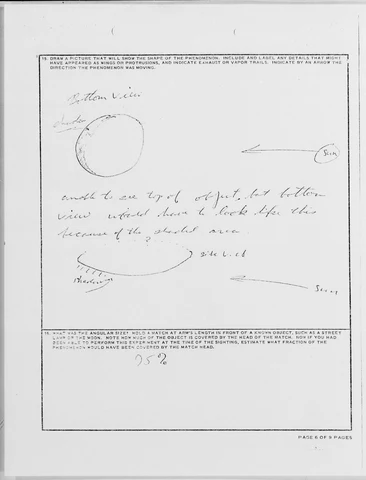 15. DRAW A PICTURE THAT WILL SHOW THE SHAPE OF THE PHENOMENON. INCLUDE AND LABEL ANY DETAILS THAT MIGHT
HAVE APPEARED AS WINGS OR PROTRUSIONS, AND INDICATE EXHAUST OR VAPOR TRAILS. INDICATE BY AN ARROW THE
DIRECTION THE PHENOMENON WAS MOVING.
Bottom View
shadow
Sun
unable to see top of object, but bottom
view would have to look like this
because of the shaded area.
side
shadow
Sun
16. WHAT WAS THE ANGULAR SIZE? HOLD A MATCH AT ARM'S LENGTH IN FRONT OF A KNOWN OBJECT, SUCH AS A STREET
LAMP OR THE MOON. NOTE HOW MUCH OF THE OBJECT IS COVERED BY THE HEAD OF THE MATCH. NOW IF YOU HAD
BEEN ABLE TO PERFORM THIS EXPERIMENT AT THE TIME OF THE SIGHTING, ESTIMATE WHAT FRACTION OF THE
PHENOMENON WOULD HAVE BEEN COVERED BY THE MATCH HEAD.
75%
PAGE 6 OF 9 PAGES